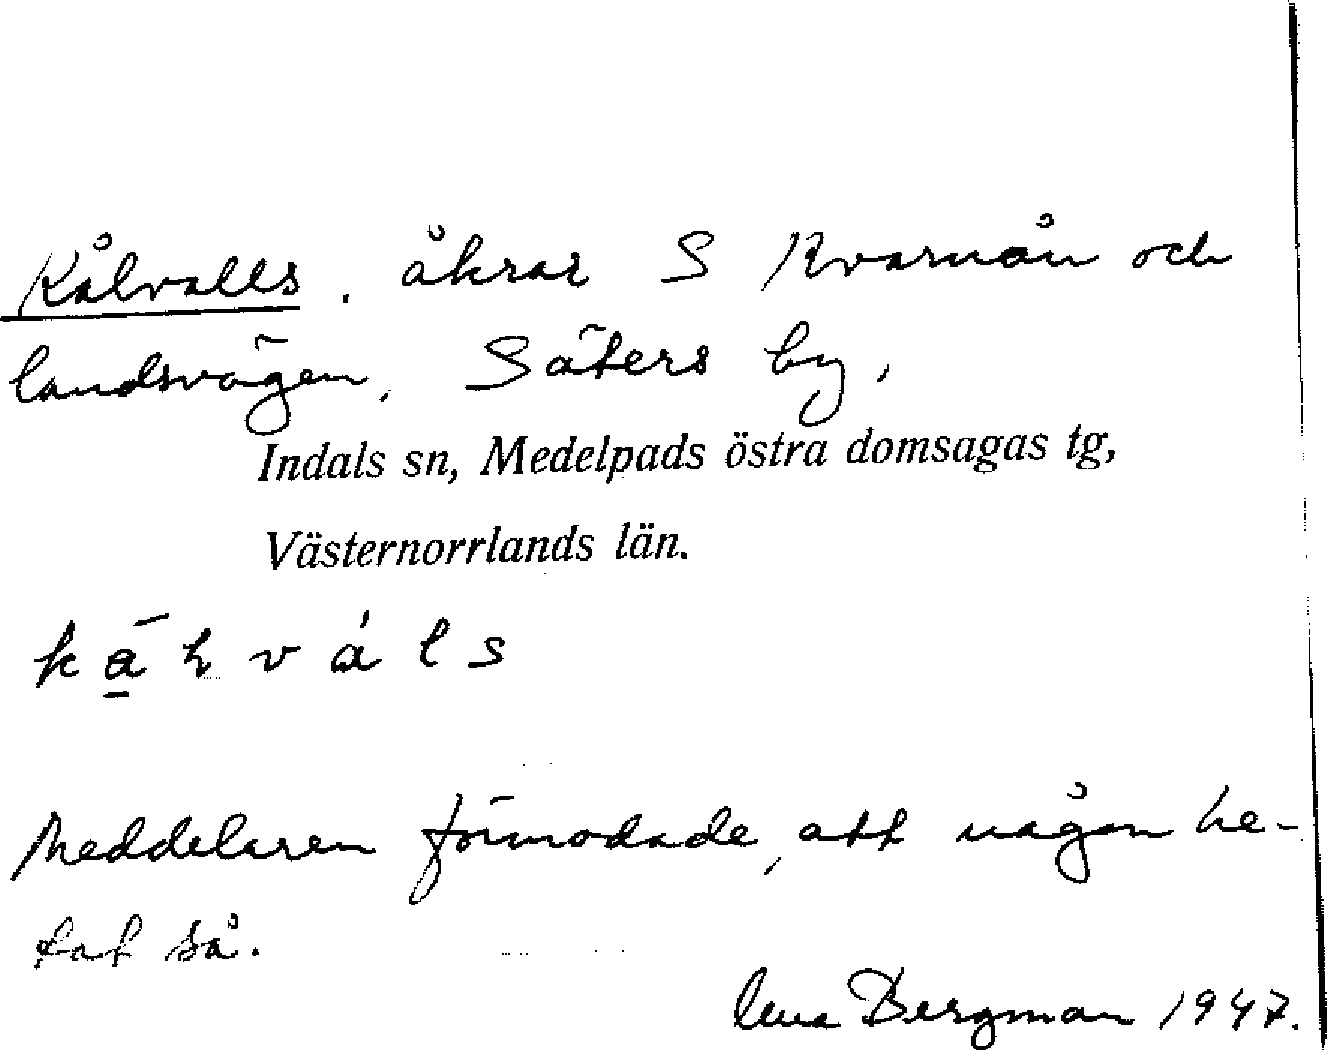 Kålvalls. åkrar S Kvarnån och
landsvägen, Säters by,
Indals sn, Medelpads östra domsagas tg,
Västernorrlands län.
Meddelaren förmodade, att någon he-
tat så.
Lena Bergman 1947.